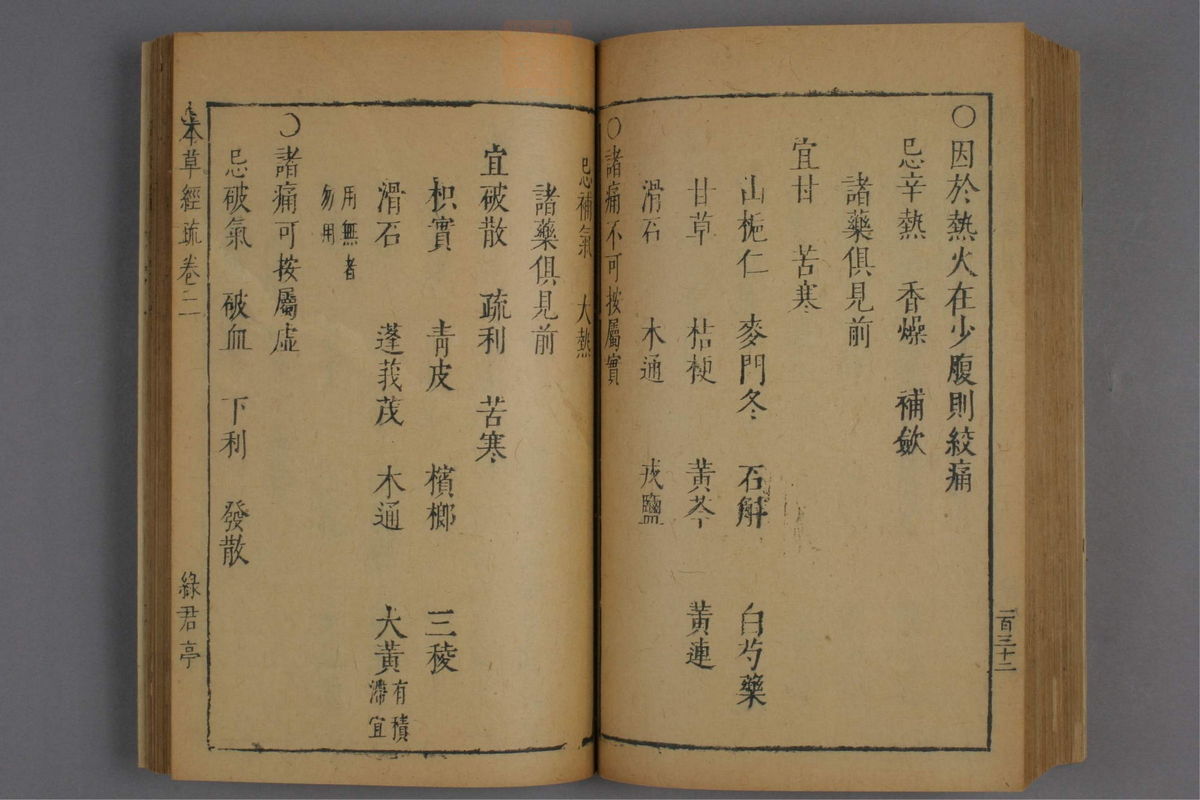 ○因於熱火在少腹則絞痛
忌辛熱 香燥 補斂
諸藥俱見前
宜甘 苦寒
山梔仁 麥門冬 石斛 白芍藥
甘草 桔梗 黃芩 黃連
滑石 木通 戎鹽
○諸痛不可按屬實
忌補氣 大熱
諸藥俱見前
宜破散 疏利 苦寒
枳實 青皮 檳榔 三稜
滑石 蓬莪茂 木通 大黃有積滯宜
用無者勿用
○諸痛可按屬虛
忌破氣 破血 下利 發散
本草經疏卷二
綠君亭
一百三十二